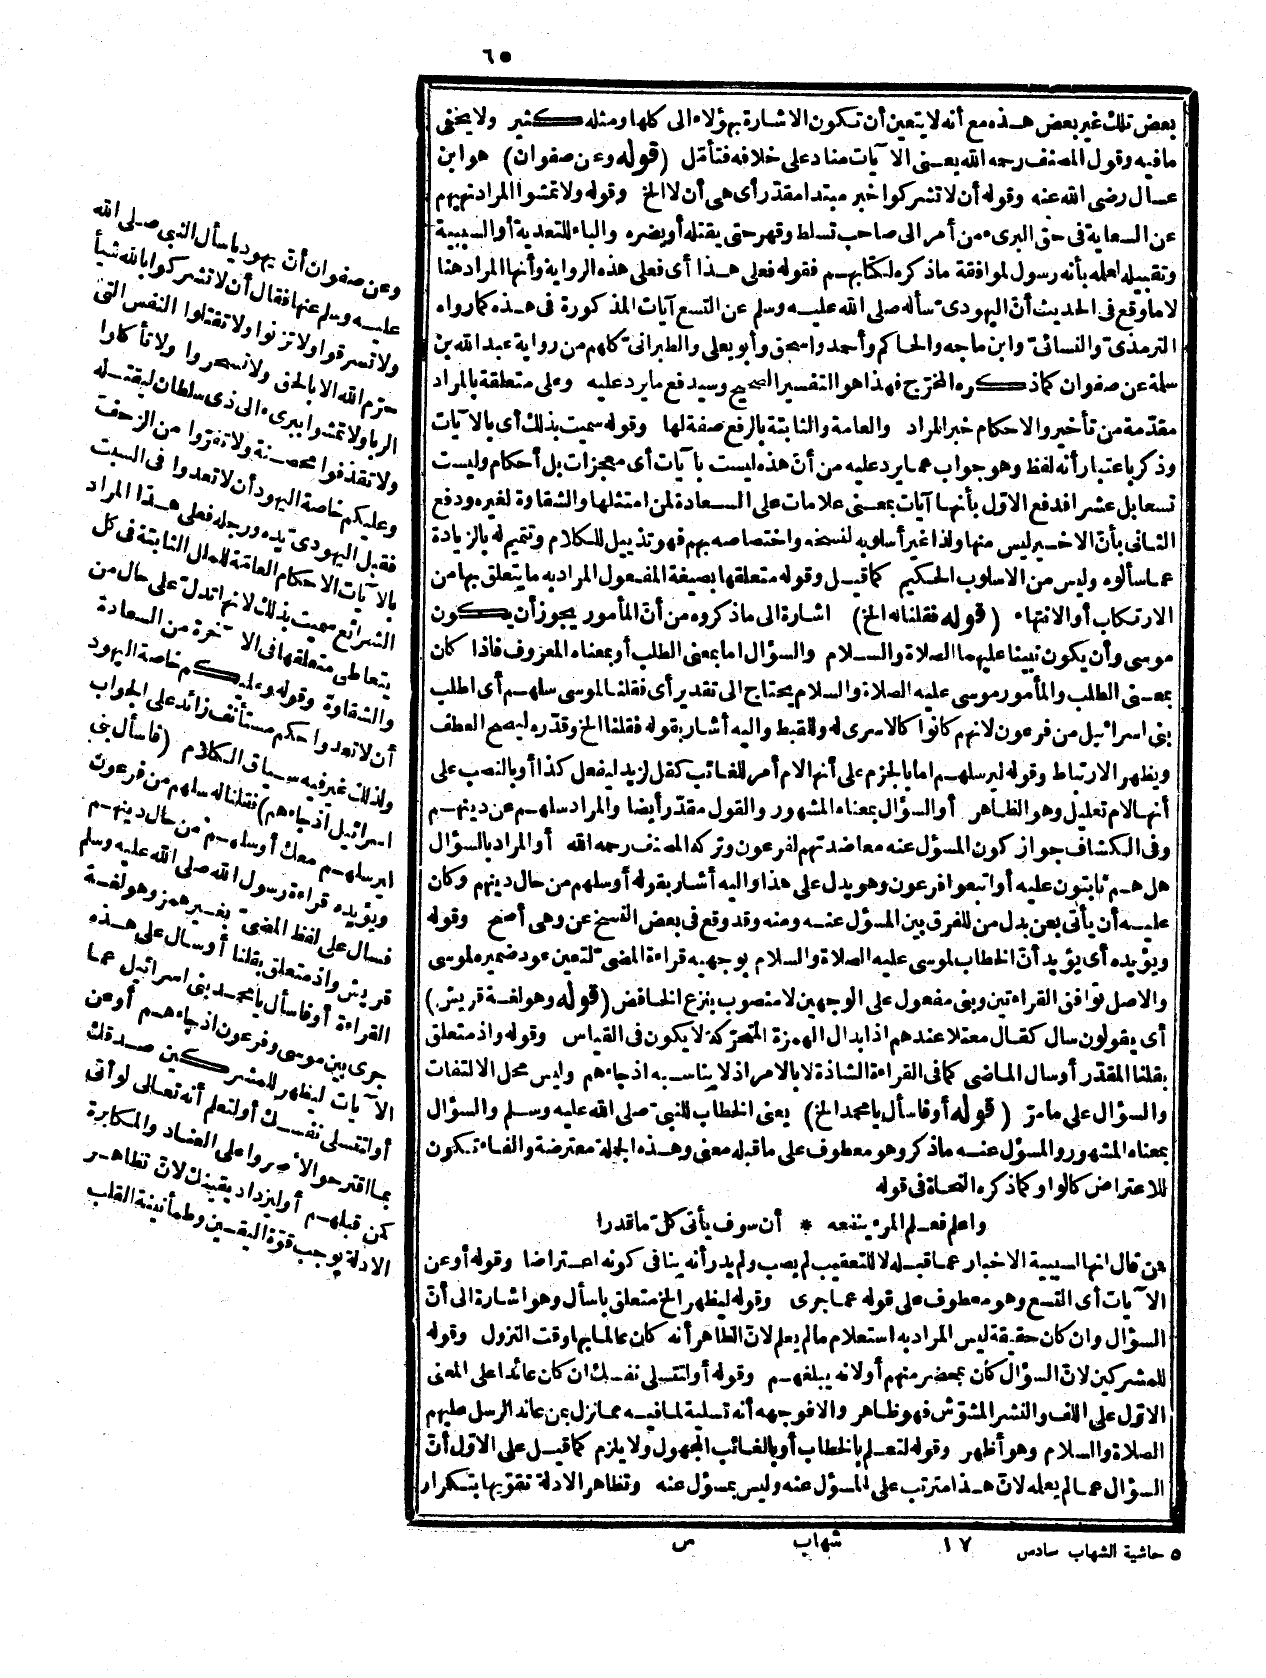 ٦٥
بعض تلك غير بعض هذه مع أنه لا يتعين أن تكون الاشارة بهؤلاء الى كلها ومثله كثير ولا يخفى
ما فيه وقول المصنف رحمه الله يعنى الآيات مناد على خلافه فتأمّل (قوله وعن صفوان) هو ابن
عسال رضى الله عنه وقوله أن لا تشركوا خبر مبتدا مقدّر أى هى أن لا الخ وقوله ولا تمشوا المراد نهيهم
عن السعاية فى حق البرىء من أمر الى صاحب تسلط وقهر حتى يقتله أو يضره والباء للتعدية أو السببية
وتقبيله لعلمه بأنه رسول لموافقة ما ذكره لكتابهم فقوله فعلى هذا أى فعلى هذه الرواية وأنها المراد هنا
لا ما وقع فى الحديث أنّ اليهودىّ سأله صلى الله عليه وسلم عن التسع آيات المذكورة فى هذه كما رواه
الترمذىّ والنسائىّ وابن ماجه والحاكم وأحمد واسحق وأبو يعلى والطبرانىّ كلهم من رواية عبد الله بن
سلمة عن صفوان كما ذكره المخرّج فهذا هو التفسير الصحيح وسيدفع ما يرد عليه وعلى متعلقة بالمراد
مقدّمة من تأخير والاحكام خبر المراد والعامة والثابتة بالرفع صفة لها وقوله سميت بذلك أى بالآيات
وذكر باعتبار أنه لفظ وهو جواب عما يرد عليه من أنّ هذه ليست بآيات أى معجزات بل أحكام وليست
تسعا بل عشرا فدفع الاوّل بأنها آيات بمعنى علامات على السعادة لمن امتثلها والشقاوة لغيره ودفع
الثانى بأنّ الاخير ليس منها ولذا غير أسلوبه لنسخه واختصاصه بهم فهو تذييل للكلام وتتميم له بالزيادة
عما سألوه وليس من الاسلوب الحكيم كما قيل وقوله متعلقها بصيغة المفعول المراد به ما يتعلق بها من
الارتكاب أو الانتهاء (قوله فقلنا له الخ) اشارة الى ما ذكروه من أنّ المأمور يجوز أن يكون
موسى وأن يكون نبينا عليهما الصلاة والسلام والسؤال اما بمعنى الطلب أو بمعناه المعروف فاذا كان
بمعنى الطلب والمأمور موسى عليه الصلاة والسلام يحتاج الى تقدير أى فقلنا لموسى سلهم أى اطلب
بنى اسرائيل من فرعون لانهم كانوا كالاسرى له وللقبط واليه أشار بقوله فقلنا الخ وقدّره ليصح العطف
ويظهر الارتباط وقوله ليرسلهم اما بالجزم على أنها لام أمر للغائب كقل لزيد ليفعل كذا أو بالنصب على
أنها لام تعليل وهو الظاهر أو السؤال بمعناه المشهور والقول مقدّر أيضا والمراد سلهم عن دينهم
وفى الكشاف جواز كون المسؤل عنه معاضدتهم لفرعون وتركه المصنف رحمه الله أو المراد بالسؤال
هل هم ثابتون عليه أو اتبعوا فرعون وهو يدل على هذا واليه أشار بقوله أو سلهم من حال دينهم وكان
عليه أن يأتى بعن بدل من للفرق بين المسؤل عنه ومنه وقد وقع فى بعض النسخ عن وهى أصح وقوله
ويؤيده أى يؤيد أنّ الخطاب لموسى عليه الصلاة والسلام بوجهيه قراءة المضىّ لتعين عود ضميره لموسى
والاصل توافق القراءتين وبنى مفعول على الوجهين لا منصوب بنزع الخافض (قوله وهو لغة قريش)
أى يقولون سال كقال معتلا عندهم اذ ابدال الهمزة المتحرّكة لا يكون فى القياس وقوله واذ متعلق
بقلنا المقدّر أو سال الماضى كما فى القراءة الشاذة لا بالامر اذ لا يناسبه اذ جاءهم وليس محل الالتفات
والسؤال على ما مرّ (قوله أو فاسأل يا محمد الخ) يعنى الخطاب للنبىّ صلى الله عليه وسلم والسؤال
بمعناه المشهور والمسؤل عنه ما ذكر وهو معطوف على ما قبله معنى وهذه الجملة معترضة والفاء تكون
للاعتراض كالواو كما ذكره النحاة فى قوله
واعلم فعلم المرء ينفعه * أن سوف يأتى كلّ ما قدرا
فمن قال انها لسببية الاخبار عما قبله لا للتعقيب لم يصب ولم يدر أنه ينافى كونه اعتراضا وقوله أو عن
الآيات أى التسع وهو معطوف على قوله عما جرى وقوله ليظهر الخ متعلق باسأل وهو اشارة الى أنّ
السؤال وان كان حقيقة ليس المراد به استعلام ما لم يعلم لانّ الظاهر أنه كان عالما بها وقت النزول وقوله
للمشركين لانّ السؤال كان بمحضر منهم أو لانه يبلغهم وقوله أو لتتسلى نفسك ان كان عائدا على المعنى
الاوّل على اللف والنشر المشوّش فهو ظاهر والا فوجهه أنه تسلية لما فيه مما نزل بمن عاند الرسل عليهم
الصلاة والسلام وهو أظهر وقوله لتعلم بالخطاب أو بالغائب المجهول ولا يلزم كما قيل على الاوّل أنّ
السؤال عما لم يعلمه لانّ هذا مترتب على المسؤل عنه وليس بمسؤل عنه وتظاهر الادلة تقوّيها بتكرار
وعن صفوان أنّ يهوديا سأل النبى صلى الله
عليه وسلم عنها فقال أن لا تشركوا بالله شيأ
ولا تسرقوا ولا تزنوا ولا تقتلوا النفس التى
حرّم الله الا بالحق ولا تسحروا ولا تأكلوا
الربا ولا تمشوا ببرىء الى ذى سلطان ليقتله
ولا تقذفوا محصنة ولا تفرّوا من الزحف
وعليكم خاصة اليهود أن لا تعدوا فى السبت
فقبل اليهودىّ يده ورجله فعلى هذا المراد
بالآيات الاحكام العامّة للملل الثابتة فى كل
الشرائع سميت بذلك لانها تدلّ على حال من
يتعاطى متعلقها فى الآخرة من السعادة
والشقاوة وقوله وعليكم خاصة اليهود
أن لا تعدوا حكم مستأنف زائد على الجواب
ولذلك غير فيه سياق الكلام (فاسأل بنى
اسرائيل اذ جاءهم) فقلنا له سلهم من فرعون
ليرسلهم معك أو سلهم من حال دينهم
ويؤيده قراءة رسول الله صلى الله عليه وسلم
فسال على لفظ المضىّ بغير همز وهو لغة
قريش واذ متعلق بقلنا أو سال على هذه
القراءة أو فاسأل يا محمد بنى اسرائيل عما
جرى بين موسى وفرعون اذ جاءهم أو عن
الآيات ليظهر للمشركين صدقك
أو لتتسلى نفسك أو لتعلم أنه تعالى لو أتى
بما اقترحوا لأصروا على العناد والمكابرة
كمن قبلهم أو ليزداد يقينك لانّ تظاهر
الادلة يوجب قوّة اليقين وطمأنينة القلب
٥ حاشية الشهاب سادس ١٧ شهاب س